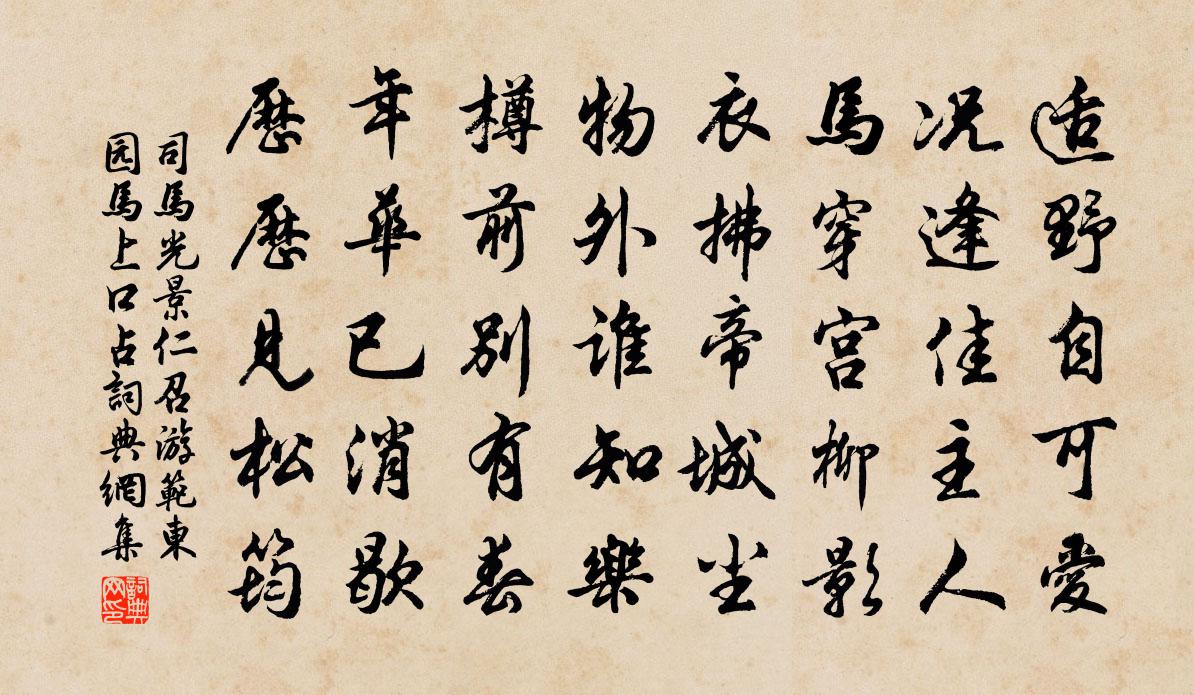 适野自可愛
况逢佳主人
馬穿宫柳影
衣拂帝城尘
物外谁知樂
樽前别有春
年華已消歇
歷歷見松筠
司馬光景仁召游範東
园馬上口占詞典網集
詞典
网印